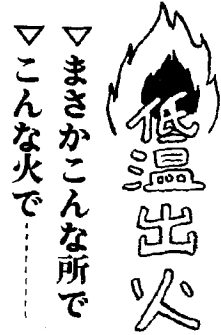 低温出火
▽まさかこんな所で
▽こんな火で………